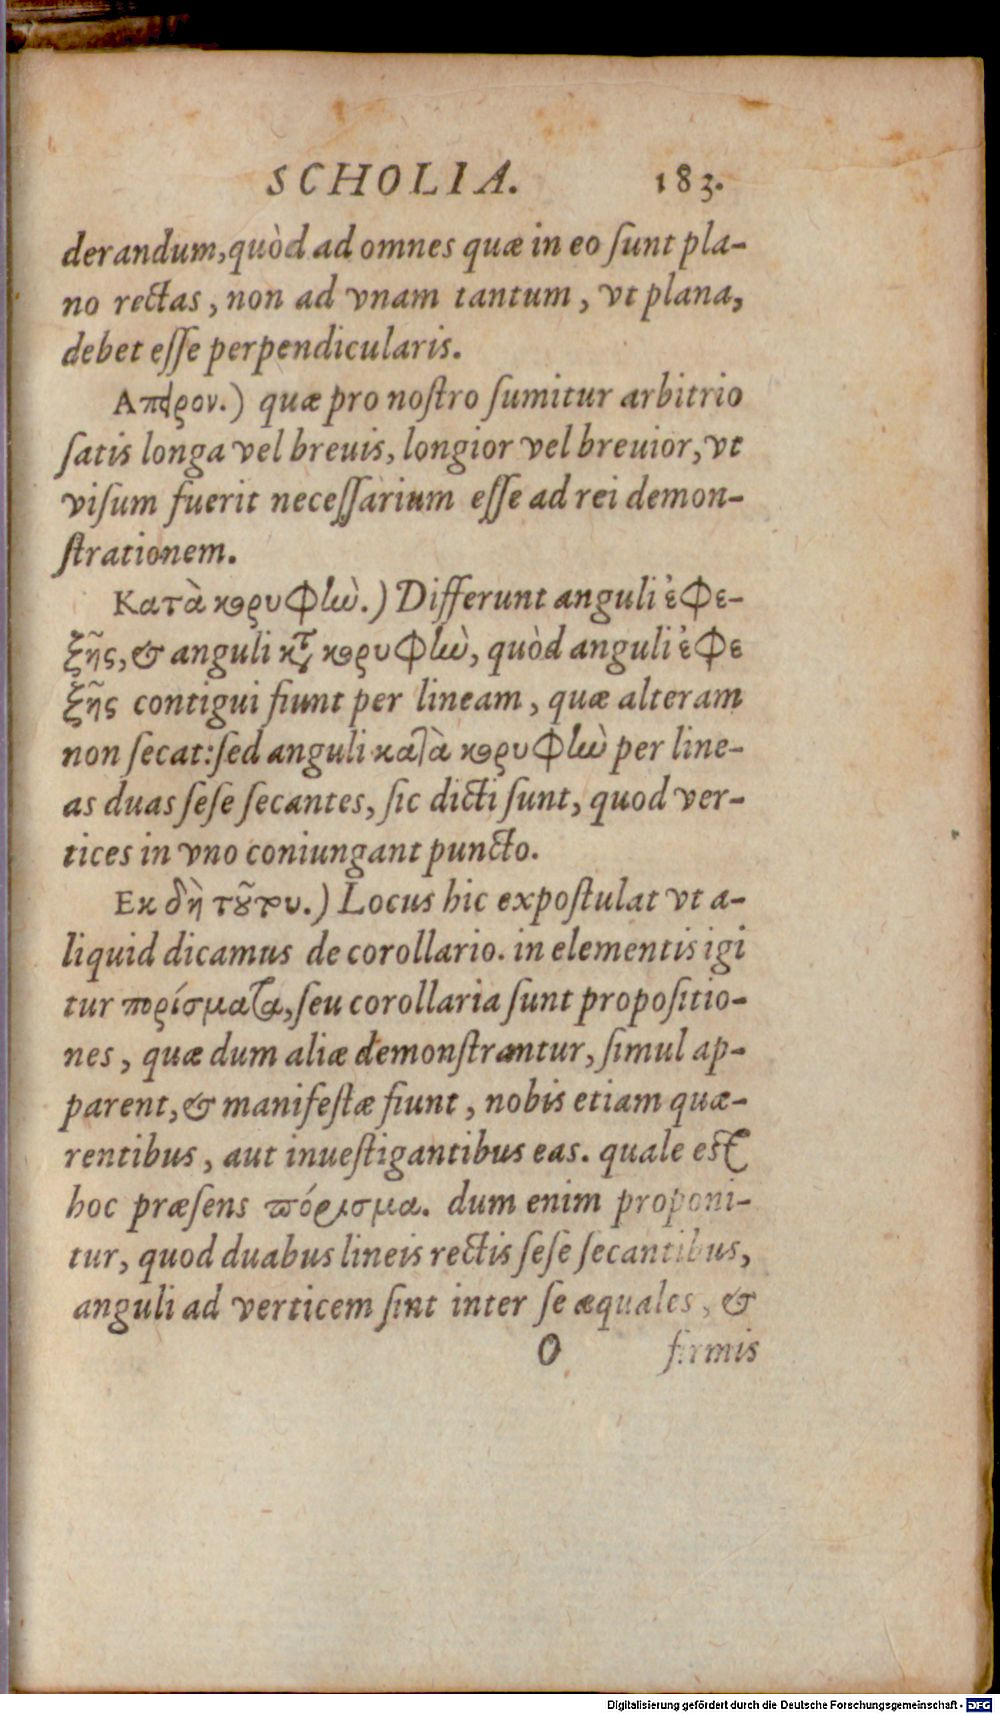 SCHOLIA. 183.
derandum, quòd ad omnes quæ in eo ſunt pla-
no rectas, non ad vnam tantum, vt plana,
debet eſſe perpendicularis.
Απειρον.) quæ pro noſtro ſumitur arbitrio
ſatis longa vel breuis, longior vel breuior, vt
viſum fuerit neceſſarium eſſe ad rei demon-
ſtrationem.
Κατὰ κορυφὼ.) Differunt anguli ἐφε-
ξῆς, & anguli κτ κορυφὼ, quòd anguli ἐφε
ξῆς contigui fiunt per lineam, quæ alteram
non ſecat: ſed anguli κατὰ κορυφὼ per line-
as duas ſeſe ſecantes, ſic dicti ſunt, quod ver-
tices in vno coniungant puncto.
Εκ δὴ τούτου.) Locus hic expoſtulat vt a-
liquid dicamus de corollario. in elementis igi
tur πορίσματα, ſeu corollaria ſunt propoſitio-
nes, quæ dum aliæ demonſtrantur, ſimul ap-
parent, & manifeſtæ fiunt, nobis etiam quæ-
rentibus, aut inueſtigantibus eas. quale eſt
hoc præſens πόρισμα. dum enim proponi-
tur, quod duabus lineis rectis ſeſe ſecantibus,
anguli ad verticem ſint inter ſe æquales, &
O firmis
Digitalisierung gefördert durch die Deutsche Forschungsgemeinschaft - DFG